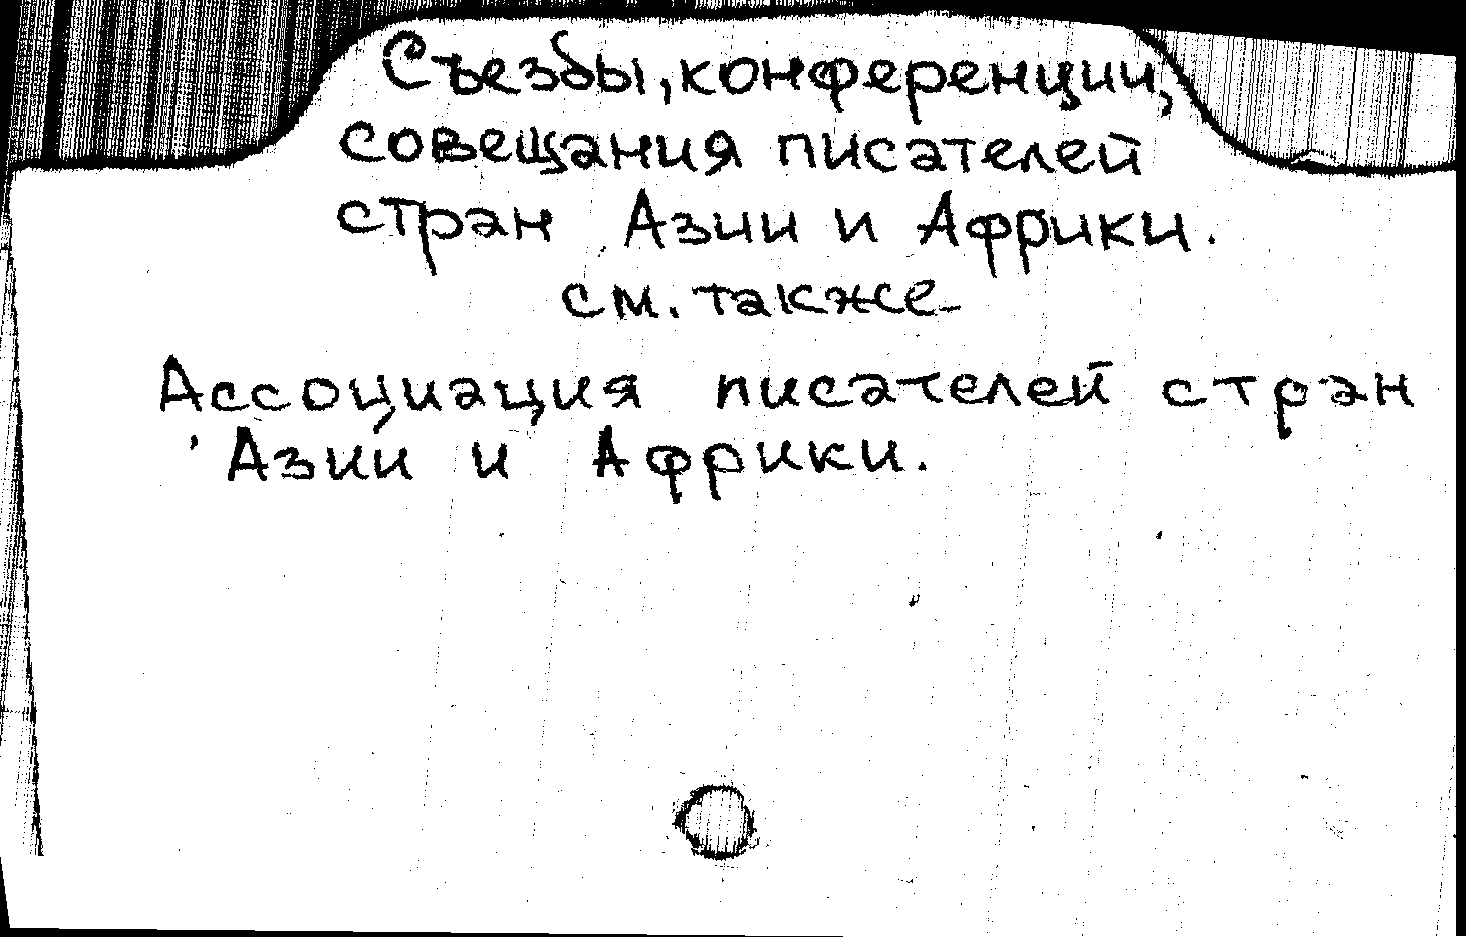 Съезды, конференции,
совещания писателей
стран Азии и Африки.
см. также
Ассоциация писателей стран
Азии и Африки.